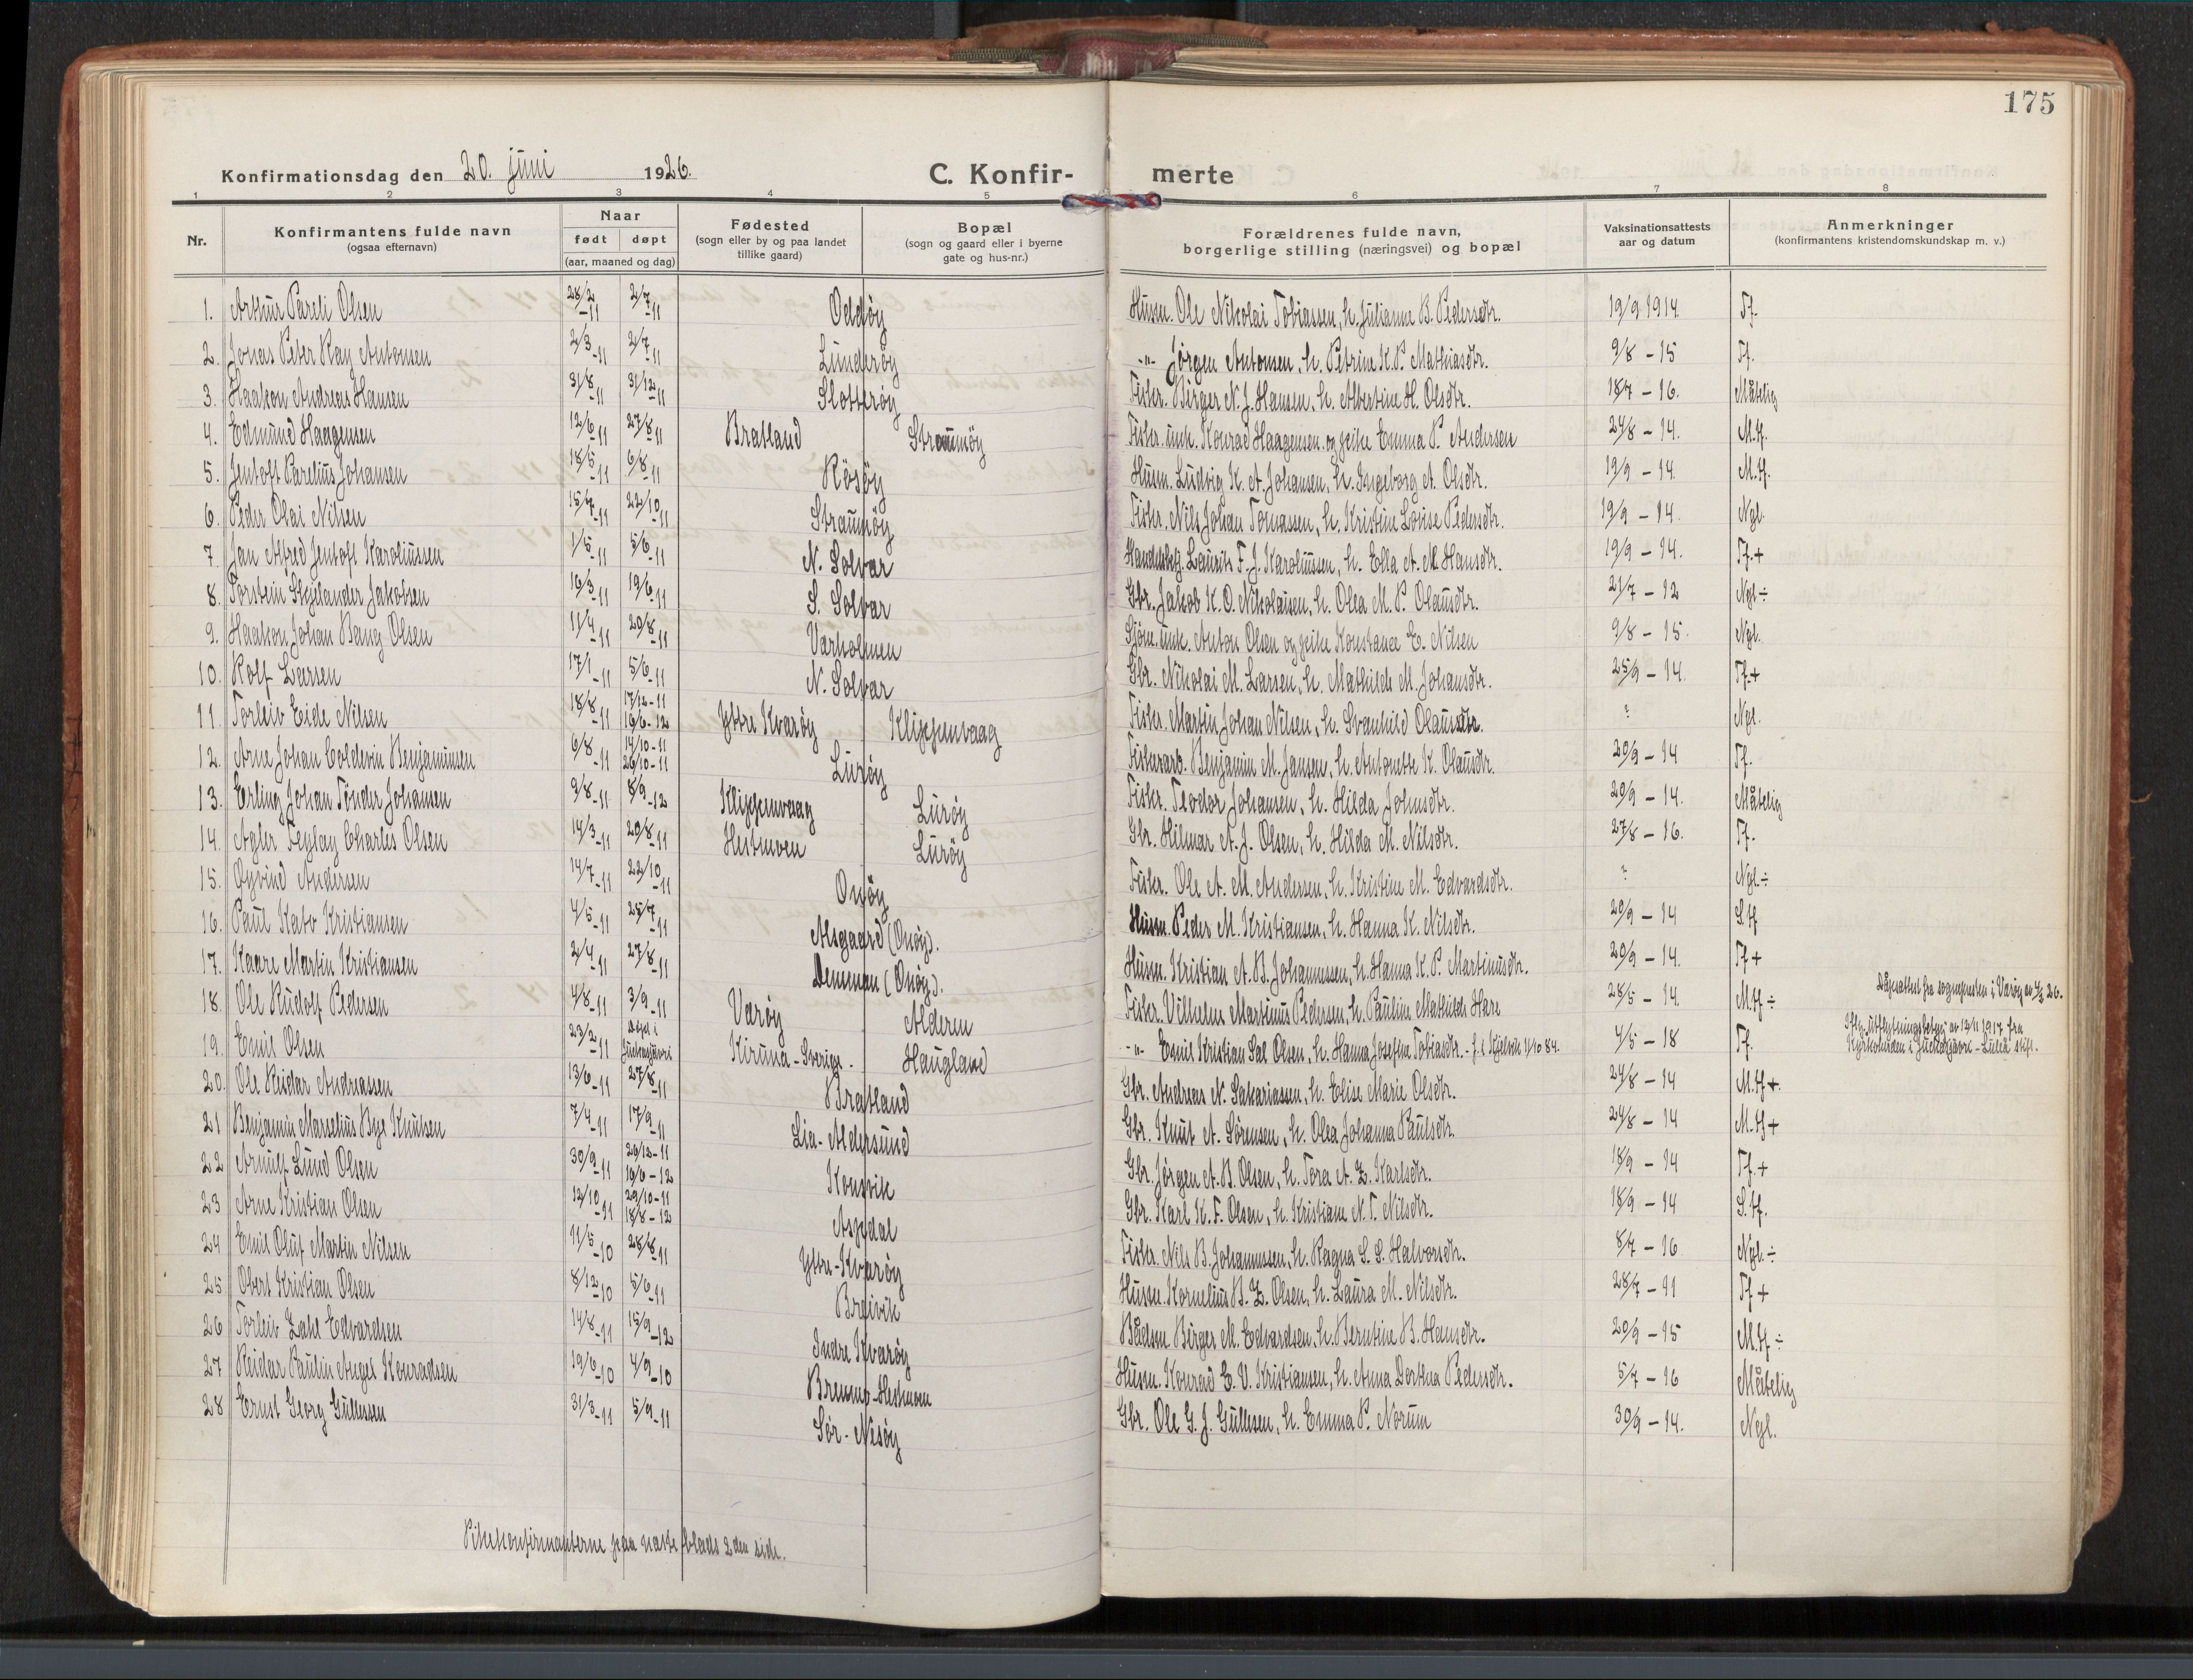 175
Konfirmationsdag den 20. juni 1926. C. Konfir- merte
1 2 3 4 5 6 7 8
Nr. Konfirmantens fulde navn (ogsaa efternavn) Naar født døpt (aar, maaned og dag) Fødested (sogn eller by og paa landet tillike gaard) Bopæl (sogn og gaard eller i byerne gate og hus-nr.) Forældrenes fulde navn, borgerlige stilling (næringsvei) og bopæl Vaksinationsattests aar og datum Anmerkninger (konfirmantens kristendomskundskap m. v.)
1. Arthur Pareli Olsen 28/2-11 2/7-11 Oddøy Husm. Ole Nikolai Tobiassen, h. Julianne B. Pedersdtr. 19/9 1914. Tf.
2. Jonas Peter Kay Antonsen 2/3-11 2/7-11 Lunderøy -"- Jørgen Antonsen, h. Petrine K. P. Mathiasdtr. 9/8 - 15 Tf.
3. Haakon Andreas Hansen 31/8-11 31/12-11 Slotterøy Fisker. Birger N. J. Hansen, h. Albertine H. Olsdtr. 18/7 - 16. Måtelig
4. Edmund Haagensen 12/6-11 27/8-11 Bratland Straumøy Fisker. unk. Konrad Haagensen og pike Emma P. Andersen 24/8 - 14. M.H.
5. Jentoft Parelius Johansen 18/5-11 6/8-11 Røsøy Husm. Ludvig K. A. Johansen, h. Ingeborg A. Olsdtr. 19/9 - 14. M.H.
6. Peder Olai Nilsen 15/7-11 22/10-11 Straumøy Fisker. Nils Johan Tomassen, h. Kristine Lovise Pedersdtr. 19/9 - 14. Ngl.
7. Jan Alfred Jentoft Karoliussen 1/5-11 5/6-11 N. Solvær Handelsbetj. Laurits F. J. Karoliussen, h. Ella A. M. Hansdtr. 19/9 - 14. Tf.+
8. Torstein Stjelander Jakobsen 16/3-11 19/6-11 S. Solvær Gbr. Jakob K. O. Nikolaisen, h. Olea M. P. Olausdtr. 21/7 - 12 Ngl ÷
9. Haakon Johan Bang Olsen 11/4-11 20/8-11 Varholmen Sjøm. unk. Anton Olsen og pike Konstance E. Nilsen 9/8 - 15. Ngl.
10. Rolf Larsen 17/1-11 5/6-11 N. Solvær Gbr. Nikolai M. Larsen, h. Mathilde M. Johansdtr. 25/9 - 14. Tf.+
11. Torleiv Eide Nilsen 18/8-11 17/12-11 16/6-12 Yttre Kvarøy Klippenvaag Fisker. Martin Johan Nilsen, h. Svanhild Olausdtr. ? Ngl.
12. Arne Johan Coldevin Benjaminsen 6/8-11 14/10-11 26/10-11 Lurøy Fiskerarb. Benjamin M. Jansen, h. Antonette K. Olausdtr. 20/9 - 14 Tf.
13. Erling Johan Tønder Johansen 9/8-11 8/9-12 Klippenvaag Lurøy Fisker. Teodor Johansen, h. Hilda Johnsdtr. 20/9 - 14. Måtelig
14. Charles Olsen 14/3-11 20/8-11 Hestmoen Lurøy Gbr. Hilmar A. J. Olsen, h. Hilda M. Nilsdtr. 27/8 - 16. Tf.
15. Øyvind Andersen 14/7-11 22/10-11 Onøy Fisker. Ole A. M. Andersen, h. Kristine M. Edvardsdtr. ? Ngl ÷
16. Paul Kato Kristiansen 4/5-11 25/7-11 Alsgaard (Onøy). Husm. Peder M. Kristiansen, h. Hanna K. Nilsdtr. 20/9 - 14 S.H
17. Kaare Martin Kristiansen 2/4-11 27/8-11 (Onøy). Husm. Kristian A. B. Johannessen, h. Hanna K. P. Martinusdtr. 20/9 - 14. Tf +
18. Ole Rudolf Pedersen 4/8-11 3/9-11 Værøy Alderen Fisker. Vilhelm Martinus Pedersen, h. Pauline Mathilde Hare 28/5 - 14. M.H ÷ Dåpsattest fra sognepresten i Værøy av 26.
19. Emil Olsen 23/2-11 døpt i Jukkasjærvi Kiruna-Sverige. Haugland -"- Emil Kristian Sal Olsen, h. Hanna Josefine Tobiasdtr. - f. i 1/10 84. 4/5 - 18 Tf. Iflg. utflytningsbetyg av 12/11 1917 fra Kyrkoherden i Juckasjärvi - Luleå stift.
20. Ole Reidar Andreassen 13/6-11 27/8-11 Bratland Gbr. Andreas N. Sakariassen, h. Elise Marie Olsdtr. 24/8 - 14 M.H+.
21 Benjamin Marselius Bye Knutsen 7/4-11 17/9-11 Lia-Aldersund Gbr. Knut A. Sørensen, h. Olea Johanna Paulsdtr. 24/8 - 14 M.H+
22 Arnulf Lund Olsen 30/9-11 26/12-11 16/6-12 Konsvik Gbr. Jørgen A. B. Olsen, h. Tora A. Z. Karlsdtr. 18/9 - 14 Tf.+
23 Arne Kristian Olsen 12/10-11 29/10-11 18/8-12 Aspdal Gbr. Karl K. F. Olsen, h. Kristiane N. T. Nilsdtr. 18/9 - 14 S.H.
24 Emil Oluf Martin Nilsen 11/5-10 28/8-11 Yttre-Kvarøy Fisker. Nils B. Johannessen, h. Ragna S. S. Halvorsdtr. 8/7 - 16 Ngl. ÷
25 Obert Kristian Olsen 8/12-10 5/6-11 Breivik Husm. Kornelius B. Z. Olsen, h. Laura M. Nilsdtr. 28/7 - 11 Tf +
26 Torleiv Zahl Edvardsen 14/8-11 15/9-12 Indre Kvarøy Bådsm. Birger M. Edvardsen, h. Berntine B. Hansdtr. 20/9 - 15 M.H ÷
27 Reidar Paulin Angel Konradsen 19/6-10 4/9-10 Hestmoen Husm. Konrad E. V. Kristiansen, h. Anna Dortea Pedersdtr. 5/7 - 16 Måtelig
28 Ernst Georg Gullesen 31/3-11 5/9-11 Sør-Nesøy Gbr. Ole G. J. Gullesen, h. Emma P. Norum 30/9 - 14. Ngl.
Pikekonfirmanterne paa næste blads 2den side.